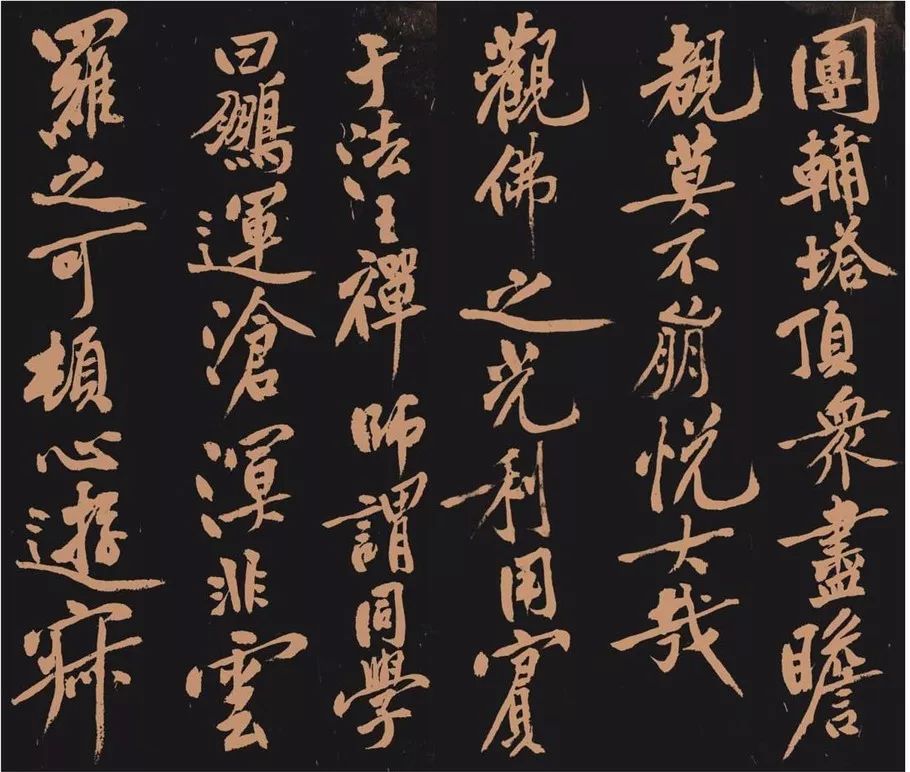 團輔塔頂衆盡瞻
覩莫不崩悅大哉
觀佛之光利用賓
于法王禪師謂同學
曰鵬運滄溟非雲
羅之可頓心遊寂